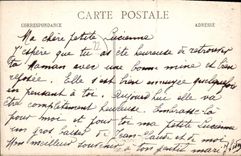 CARTE POSTALE
CORRESPONDANCE ADRESSE
Ma chère petite Lucienne
J'espère que tu as été heureuse de retrouver
ta Maman avec une bonne mine et bien
reposée. Elle s'est bien ennuyée quelquefois
en pensant à toi. Aujourd'hui elle va
être complètement heureuse. Embrasse-la
pour moi et pour toi ma petite Lucienne
un gros baiser de Jean-Louis et moi.
Mon meilleur souvenir à ton petit mari